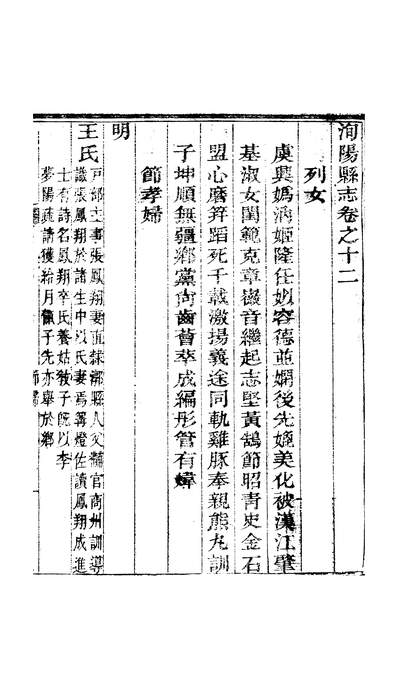 洵陽縣志卷之十二
列女
虞興媯汭姬隆任姒容德並嫻後先媲美化被漢江肇
基淑女閨範克章徽音繼起志堅黃鵠節昭青史金石
盟心磨笄蹈死千載激揚義途同軌雞豚奉親熊丸訓
子坤順無疆鄉黨尚齒薈萃成編彤管有煒
節孝婦
明
王氏
戶部主事張鳳翔妻直隸人父官商州訓導
識張鳳翔於諸生中以氏妻焉篝燈佐讀鳳翔成進
士有詩名鳳翔卒氏養姑敎子旣以李
夢陽疏請獲給月子先亦舉於鄉